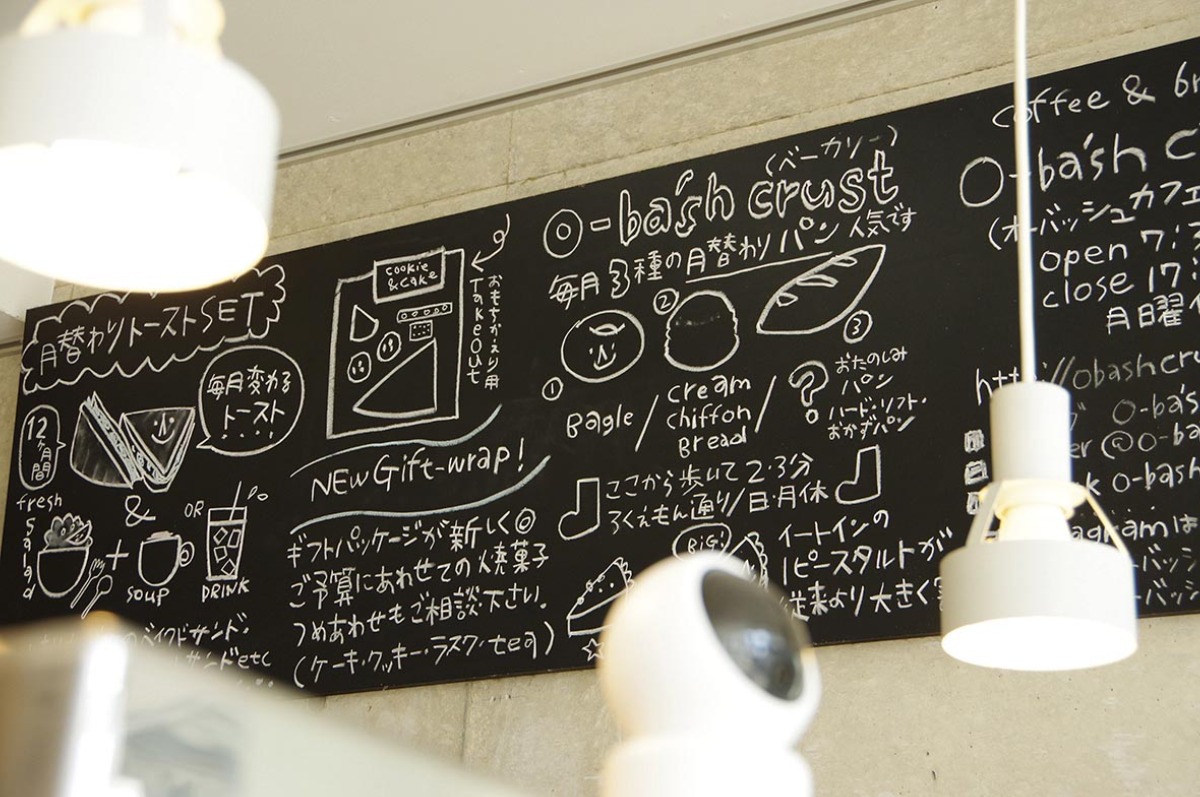 月替わりトーストSET
毎月変わる
トースト
12
ヶ月
間
fresh
salad
&
+
soup
OR
DRINK
ベイクドサンド・
サンドetc
cookie
& cake
おもちかえり用
Takeout
NEW Gift-wrap!
ギフトパッケージが新しく◎
ご予算にあわせての焼菓子
つめあわせもご相談下さい。
(ケーキ・クッキー・ラスク・tea)
(ベーカリー)
O-ba'sh crust
毎月3種の月替わりパン人気です
①
②
③
Bagle /
cream
chiffon
Bread /
?
おたのしみ
パン
ハード・ソフト・
おかずパン
ここから歩いて2・3分
ろくえもん通り/日・月休
BiG!
イートインの
1ピースタルトが
従来より大きく
coffee & br
O-ba'sh c
(オーバッシュカフェ
open 7:
close 17:
月曜
http://obashcr
O-ba's
er @O-ba
k O-bash
agramは